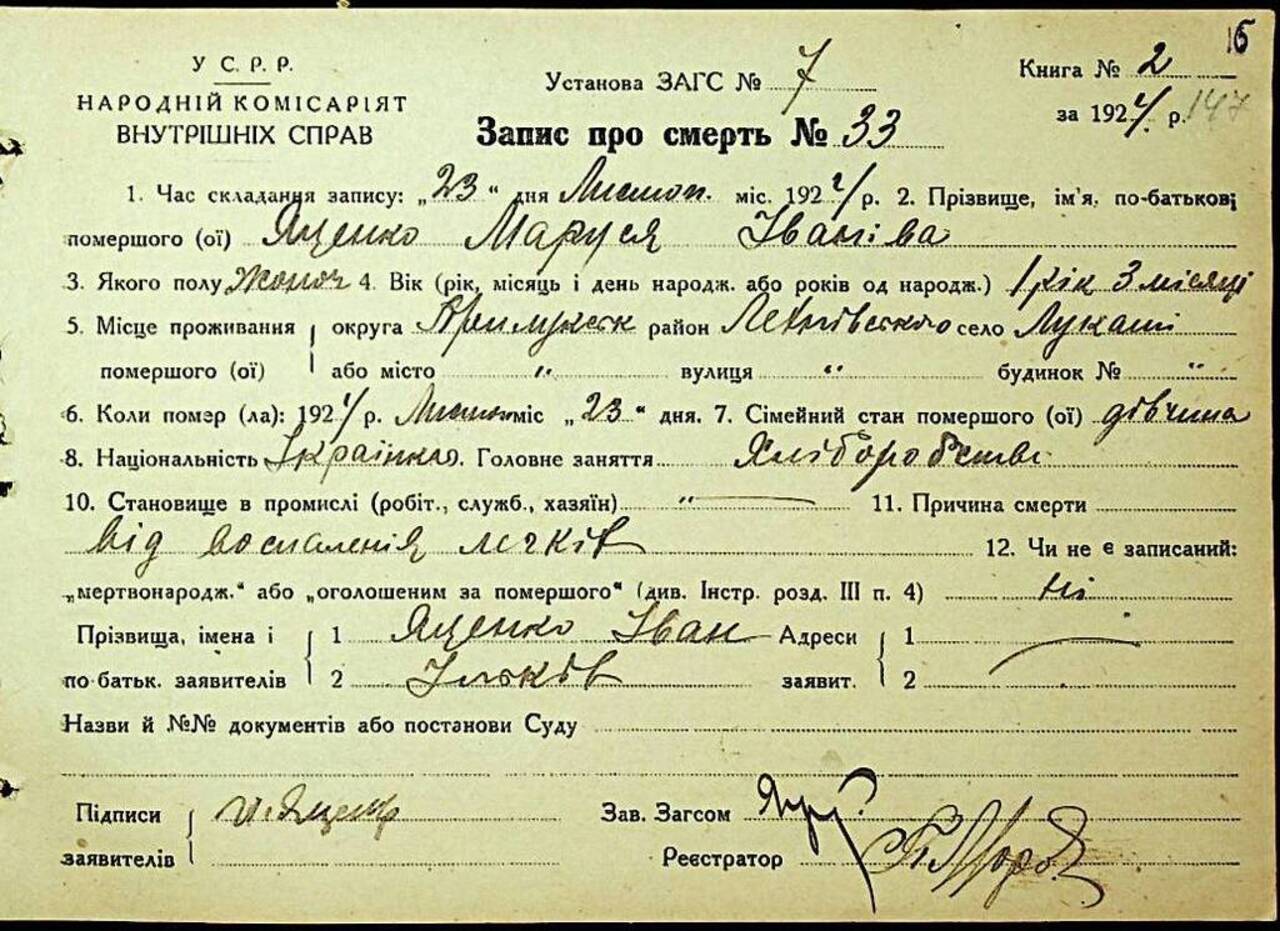 15
У С. Р. Р.
НАРОДНІЙ КОМІСАРІЯТ
ВНУТРІШНІХ СПРАВ
Установа ЗАГС № 7
Книга № 2
за 1924 р. 147
Запис про смерть № 33
1. Час складання запису: „23“ дня Листоп. міс. 1924 р. 2. Прізвище, ім'я, по-батькові
помершого (ої) Яценко Маруся Іваніва
3. Якого полу Жоноч 4. Вік (рік, місяць і день народж. або років од народж.) 1 рік 3 місяці
5. Місце проживання округа Прилукськ район село Лукаші
помершого (ої) або місто „ вулиця „ будинок № „
6. Коли помэр (ла): 1924 р. міс „23“ дня. 7. Сімейний стан помершого (ої) дівчина
8. Національність Українка. Головне заняття Хліборобство
10. Становище в промислі (робіт., служб., хазяїн) „ 11. Причина смерти
від воспаленія легків 12. Чи не є записаний:
„мертвонародж.“ або „оголошеним за помершого“ (див. Інстр. розд. III п. 4) ні
Прізвища, імена і 1 Яценко Іван Адреси 1
по батьк. заявителів 2 Ільків заявит. 2
Назви й №№ документів або постанови Суду
Підписи
заявителів
Зав. Загсом
Реєстратор